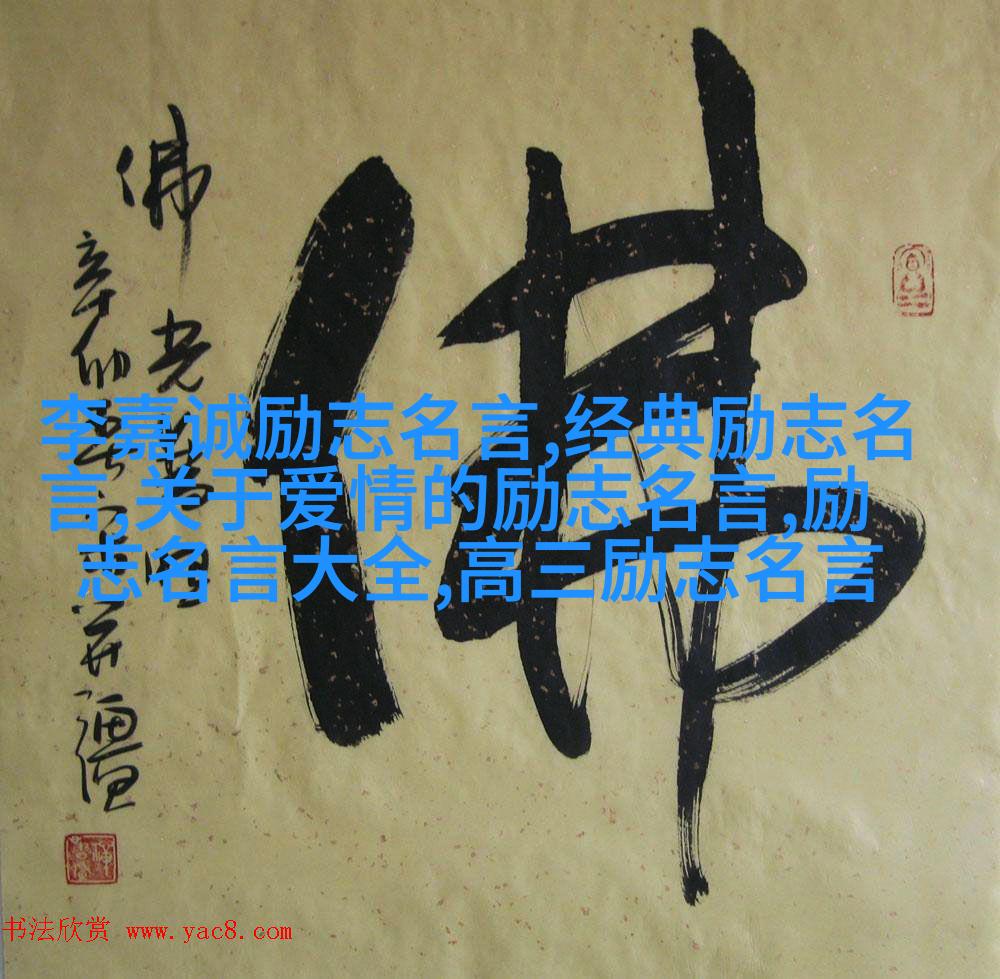 佛
佛光普照
李嘉诚励志名言,经典励志名
言,关于爱情的励志名言,励
志名言大全,高三励志名言
书法欣赏 www.yac8.com